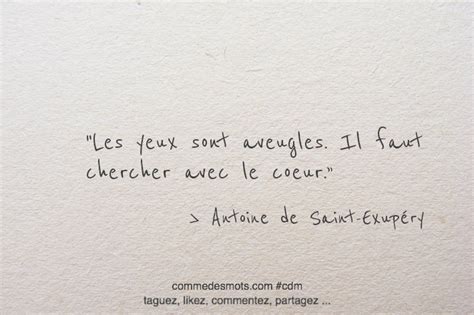 "Les yeux sont aveugles. Il faut
chercher avec le coeur."
> Antoine de Saint-Exupéry
commedesmots.com #cdm
taguez, likez, commentez, partagez ...